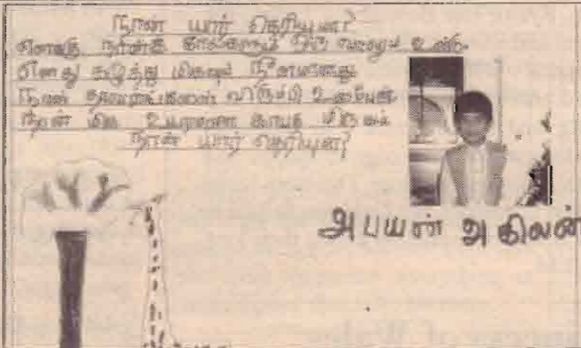 நான் யார் தெரியுமா?
எனக்கு நான்கு கால்களும் ஒரு வாலும் உண்டு
எனது கழுத்து மிகவும் நீளமானது
நான் தாவரங்களை விரும்பி உண்பேன்
நான் மிக உயரமான காட்டு மிருகம்
நான் யார் தெரியுமா?
அபயன் அகிலன்